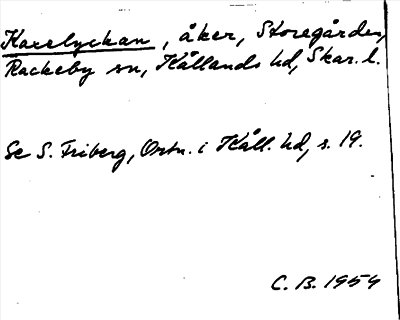 Karelyckan, åker, Storegården,
Rackeby sn, Kållands hd, Skar. l.
Se S. Friberg, Ortn. i Kåll. hd, s. 19.
C. B. 1954